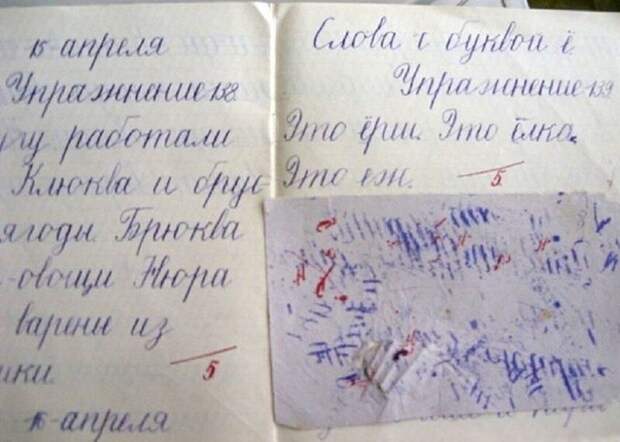 15 апреля
Упражнение 158.
угу работали
Клюква и брус-
ягоды. Брюква
-овощи Нюра
варенье из
5
апреля
Слова с буквой ё.
Упражнение 159
Это ёрш. Это ёлка.
Это еж.
5